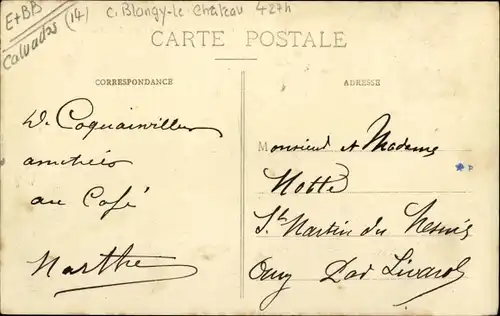 E+BB
Calvados (14) C. Blangy-le Château 427h
CARTE POSTALE
CORRESPONDANCE
ADRESSE
De Coquainvilliers
amitiés
au Café
Marthe
Monsieur et Madame
Motte
St Martin du Mesnil
Oury par Livarot